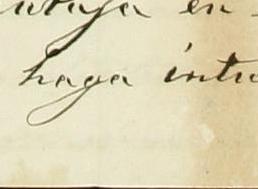 en
haga intu